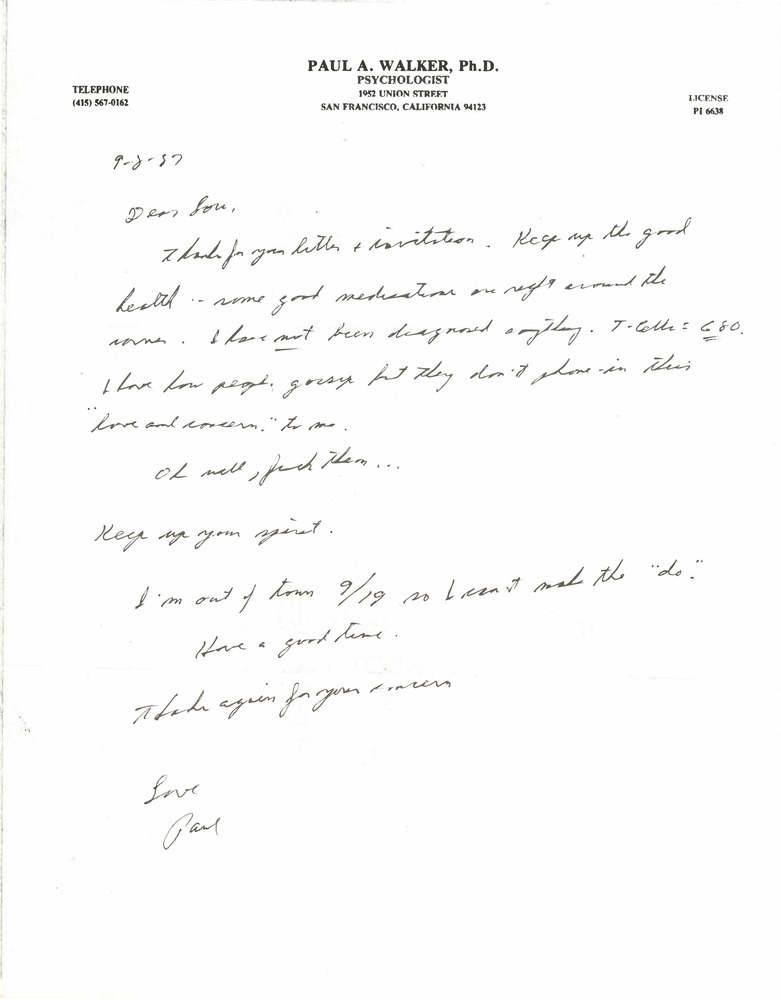 PAUL A. WALKER, Ph.D.
PSYCHOLOGIST
1952 UNION STREET
SAN FRANCISCO, CALIFORNIA 94123
TELEPHONE
(415) 567-0162
LICENSE
PI 6638
9-2-87
Dear Lou,
Thanks for your letter + invitation. Keep up the good
health -- some good medications are right around the
corner. I have not been diagnosed anything. T-Cells = 680.
I love how people gossip but they don't phone-in this
"love and concern." to me.
Oh well, fuck them...
Keep up your spirit.
I'm out of town 9/19 so I can't make the "do."
Have a good time.
Thanks again for your concern
Love
Paul